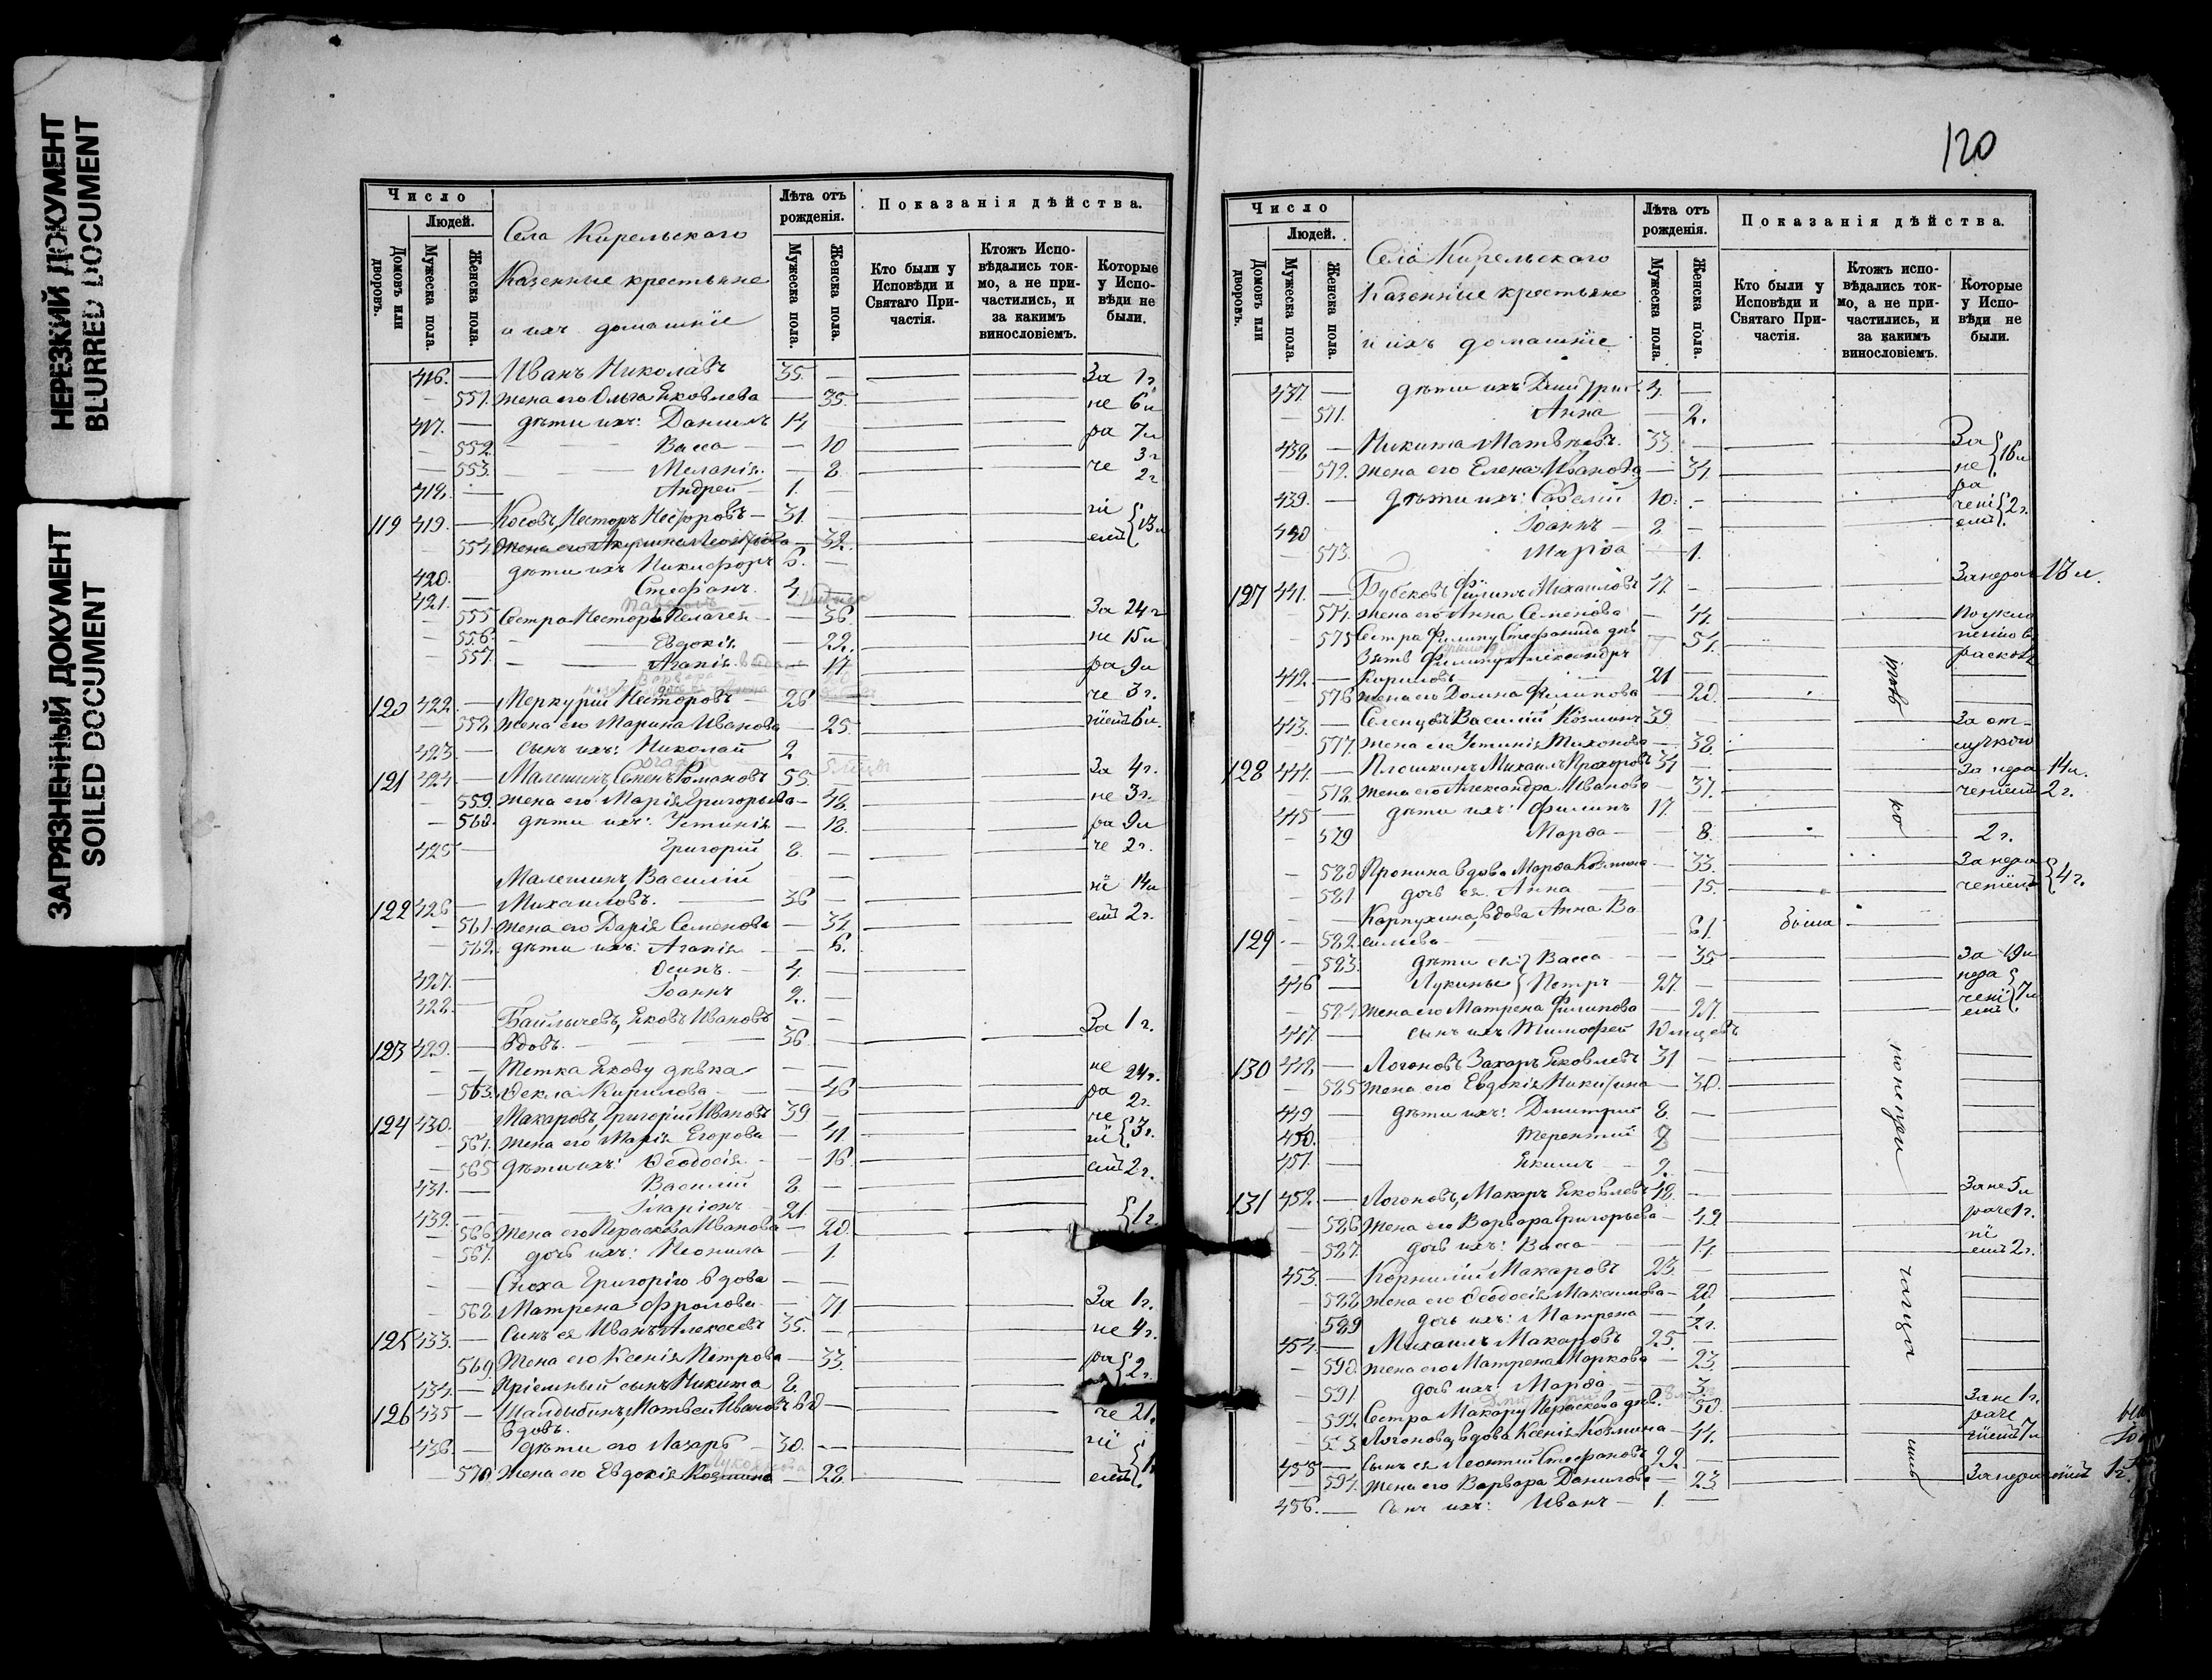 НЕРЕЗКИЙ ДОКУМЕНТ
BLURRED DOCUMENT
ЗАГРЯЗНЕННЫЙ ДОКУМЕНТ
SOILED DOCUMENT
Число
Людей.
Домовъ или дворовъ.
Мужеска пола.
Женска пола.
Села Кирельскаго
Казенные крестьяне
и ихъ домашніе
Лѣта отъ рожденія.
Мужеска пола.
Женска пола.
Показанія дѣйства.
Кто были у Исповѣди и Святаго Причастія.
Ктожъ Исповѣдались токмо, а не причастились, и за какимъ винословіемъ.
Которые у Исповѣди не были.
416. — Иванъ Николаевъ 35. — За 1 г.
551. жена его Ольга Яковлева — 35. не 6 и
417. — дѣти ихъ: Даніилъ 14 ра 7 и
552. Васса — 10 3 г
553. Меланія — 8. че 2 г
418. — Андрей — 1. —
119 419. — Косовъ, Несторъ Несторовъ — 31. ні
554. жена его Акулина — 32. емъ 13 и
420. дѣти ихъ Никифоръ 6. —
421. — Стефанъ 4. —
555 Сестра Нестору Пелагея — 36. За 24 г
556. Евдокія — 22. не 15 и
557. Агапія — 17 ра 9 и
120 422. — Меркурій Несторовъ — 26 че 3 г.
558. жена его Марина Иванова — 25. ніемъ 6 и.
423. — сынъ ихъ: Николай 2 —
121 424. — Малешинъ, Семенъ Романовъ 55 За 4 г.
559. жена его Марія Григорьева — 48. не 3 г.
560. дѣти ихъ: Устинія — 18. ра 9 и
425 — Григорій 8. — че 2 г.
Малешинъ, Василій — — ні 14 и
122 426 — Михаиловъ. — 36 — емъ 2 г.
561. жена его Дарія Семенова — 34
562. дѣти ихъ: Агапія — 6.
427. — Осипъ. — 4.
428. — Іоаннъ 2. —
Байлычевъ, Яковъ Ивановъ — — За 1 г.
123 429. — вдовъ. — 36. —
Тетка Якову дѣвка — — не 24 г.
563. Ѳекла Кирилова — 46 ра 2 г.
124 430. Макаровъ, Григорій Ивановъ 39 — че
564. жена его Марія Егорова — 41. ні 3 г.
565 дѣти ихъ: Ѳеодосія — 16. емъ 2 г.
431. — Василій 8. —
432. — Иларіонъ — 21 — 1 г.
566 Жена его Параскева Иванова — 20.
567. дочь ихъ: Неонила — 1.
Сноха Григорію вдова — —
568. Матрена Фролова — 71 За 1 г.
125 433. — Сынъ ея Иванъ Алексеевъ 35. — не 4 г.
569. Жена его Ксенія Петрова — 33. ра 2 г.
434. — Пріемный сынъ Никита 8.
126 435 — Матвей Ивановъ — че 2 г.
вдовъ.
436. — дѣти его Лазарь — 30. — ні
570. Жена его Евдокія Козмина — 28. емъ
120
Число
Людей.
Домовъ или дворовъ.
Мужеска пола.
Женска пола.
Села Кирельскаго
Казенные крестьяне
и ихъ домашніе
Лѣта отъ рожденія.
Мужеска пола.
Женска пола.
Показанія дѣйства.
Кто были у Исповѣди и Святаго Причастія.
Ктожъ исповѣдались токмо, а не причастились, и за какимъ винословіемъ.
Которые у Исповѣди не были.
437 — дѣти ихъ: Димитрій 4. —
571. Анна — 2.
438 — Никита Матвѣевъ. 33. — За
572. жена его Елена Иванова — 34. не 16 и
439. — дѣти ихъ: Савелій 10. — ра
440 Іоаннъ — 2 — чені 2 г.
573. Марѳа — 1. емъ
127 441. — Филипъ Михаиловъ 47. — За нера 13 и.
574. жена его Анна Семенова — 44. По укло
575 Сестра Филипу Стефанида дѣв. — 54. ненію въ
Зять Филипу Александръ расколъ
442. — Кириловъ — 21 —
576 жена его Домна Филипова — 20.
443. — Селенцовъ Василій Козминъ 39 — За от-
577. жена его Устинія Тихонова — 38. лучкою
128 444. — Плешкинъ, Михаилъ Прохоровъ 34 — За нера 14 и.
578. жена его Александра Иванова — 37. ченіемъ 2 г.
445 — дѣти ихъ: Филипъ 17.
579 Марѳа — 8. 2 г.
580 Пронина вдова Марѳа Козмина — 33. За нера
581 дочь ея Анна — 15. ченіемъ 4 г.
Карпухина, вдова Анна Ва-
129 — 582. сильева — 61. была
583. дѣти ея: Васса — 35 За 19 и
446 — Лукины Петръ — 27. — нера
584 жена его Матрена Филипова — 27. чені 7 и
447. — сынъ ихъ Тимофей 10 мѣсцевъ емъ
130 448. — Логоновъ Захаръ Яковлевъ 31 —
585 жена его Евдокія Никитина — 30.
449 — дѣти ихъ: Дмитрій 8. —
450. Терентій 8 —
451. — Якимъ — 2. —
131 452. — Логоновъ, Макаръ Яковлевъ 48. — За не 5 и
586 жена его Варвара Григорьева — 49 раче 1 г.
587. дочь ихъ: Васса — 14. ні
емъ 2 г.
453. — Корнилій Макаровъ 23. —
588 жена его Ѳеодосія Максимова — 20
589 дочь ихъ: Матрона —
454. — Михаилъ Макаровъ 25. —
590. жена его Матрена Маркова — 23.
591 дочь ихъ: Марѳа — 3.
592. Сестра Макару Параскева дѣв. 50. За не 1 г.
раче
593. Логонова, вдова Ксенія Козмина — 44. ніемъ 7 и
455 — Сынъ ея Леонтій Стефановъ 22. —
594. жена его Варвара Данилова — 23 За нераченіемъ 1 г.
456. — Сынъ ихъ: Иванъ — 1. —